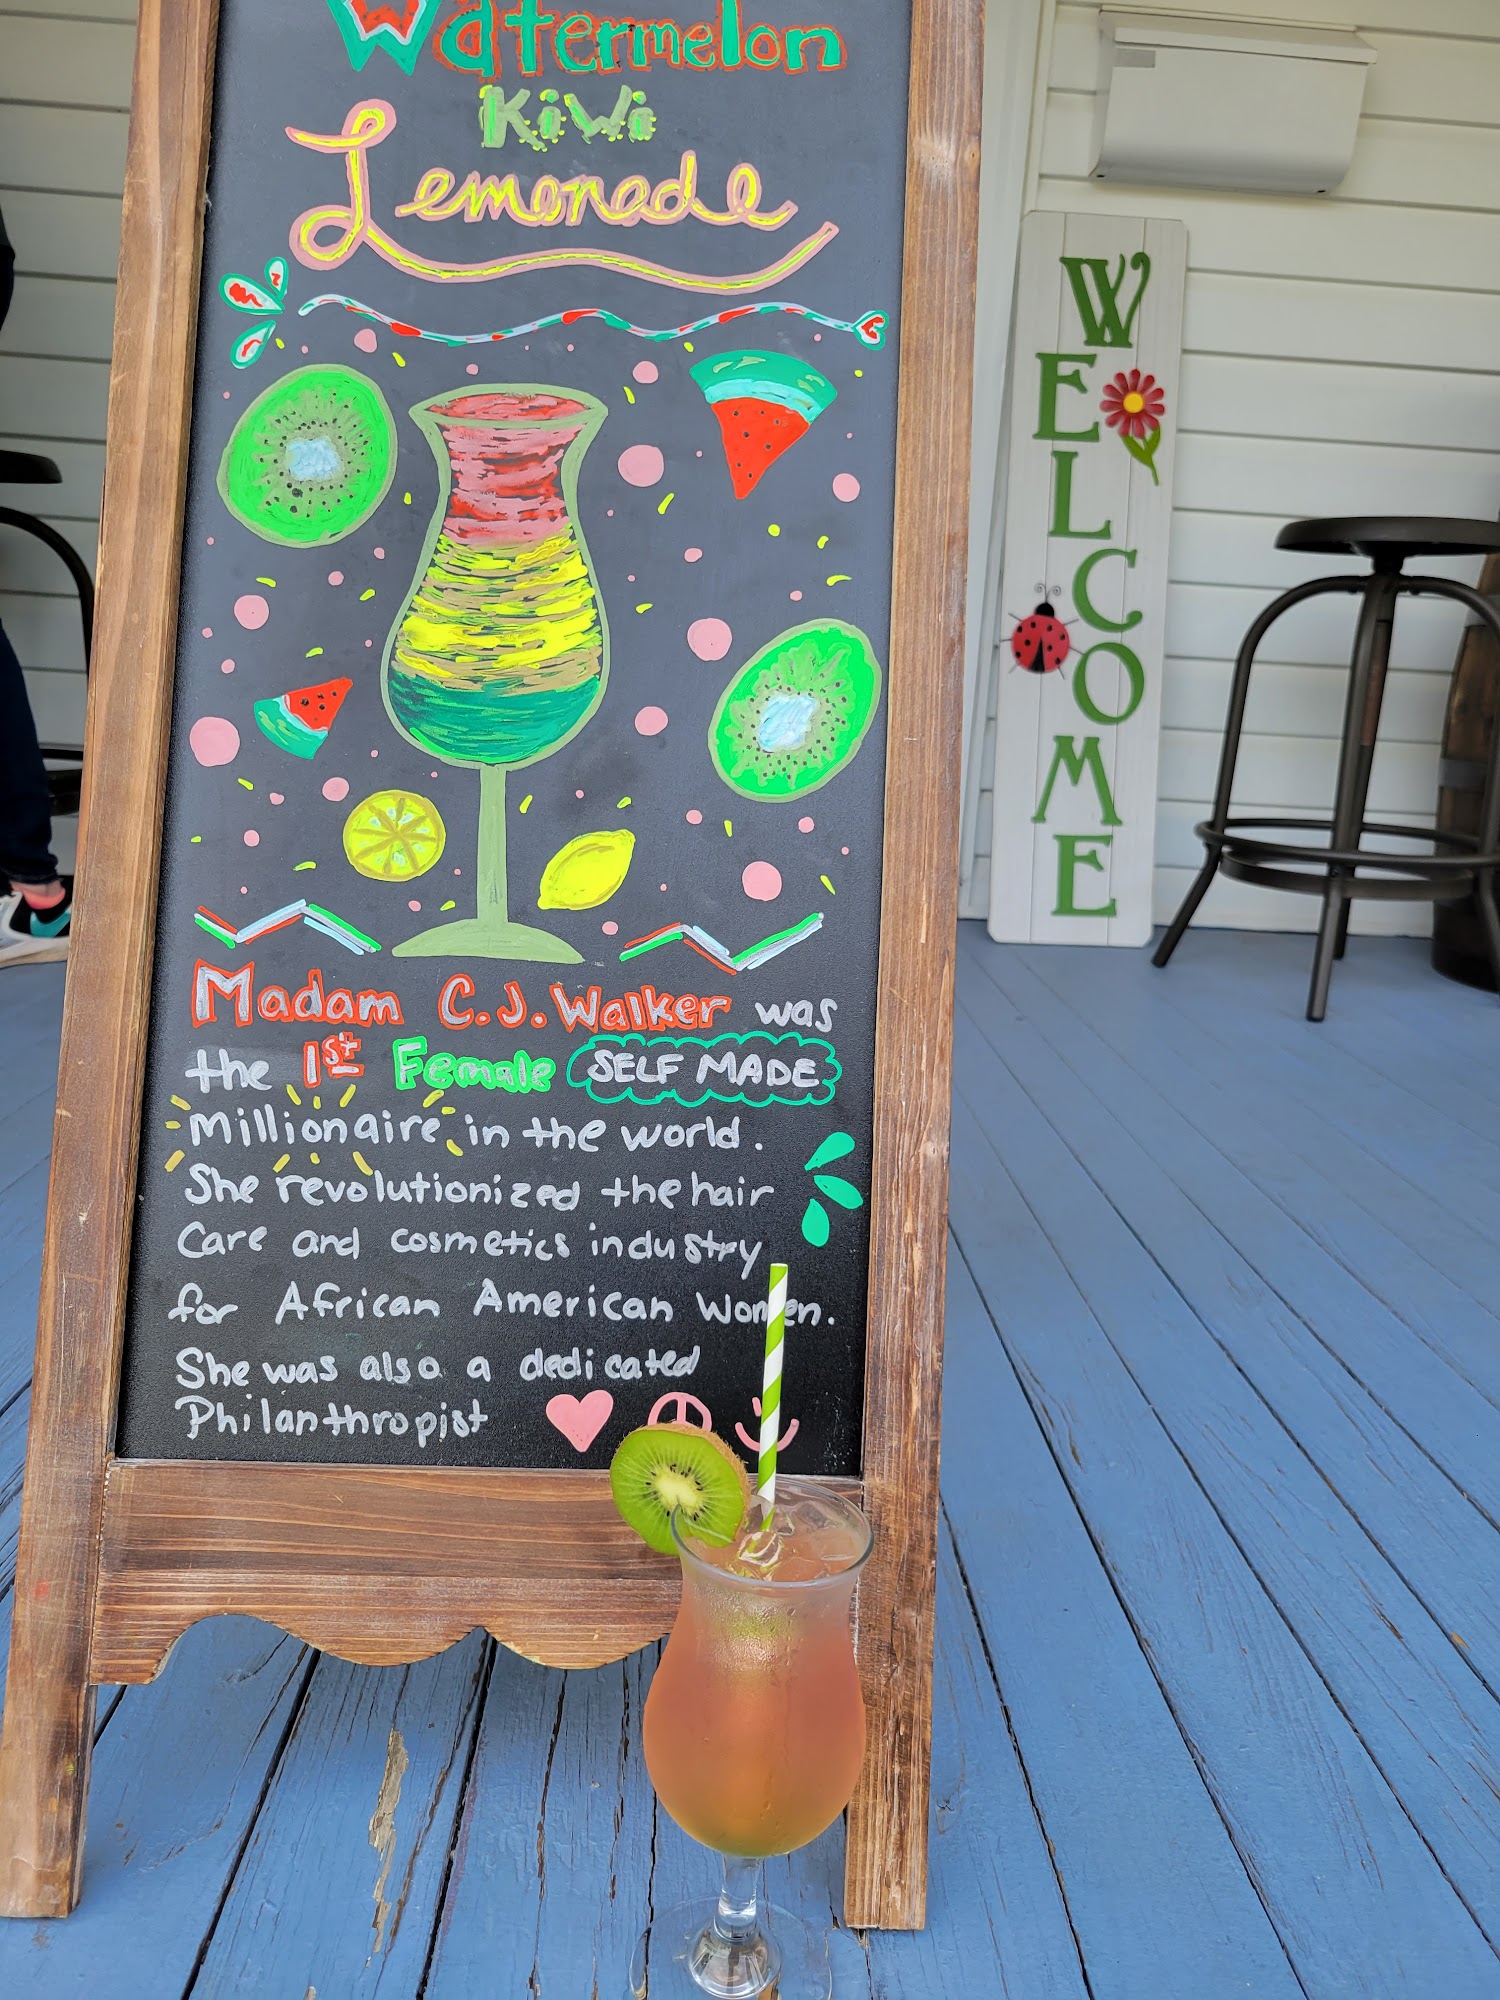 Watermelon
Kiwi
Lemonade
Madam C.J. Walker was
the 1st Female SELF MADE
Millionaire in the world.
She revolutionized the hair
Care and cosmetics industry
for African American Women.
She was also a dedicated
Philanthropist
WELCOME